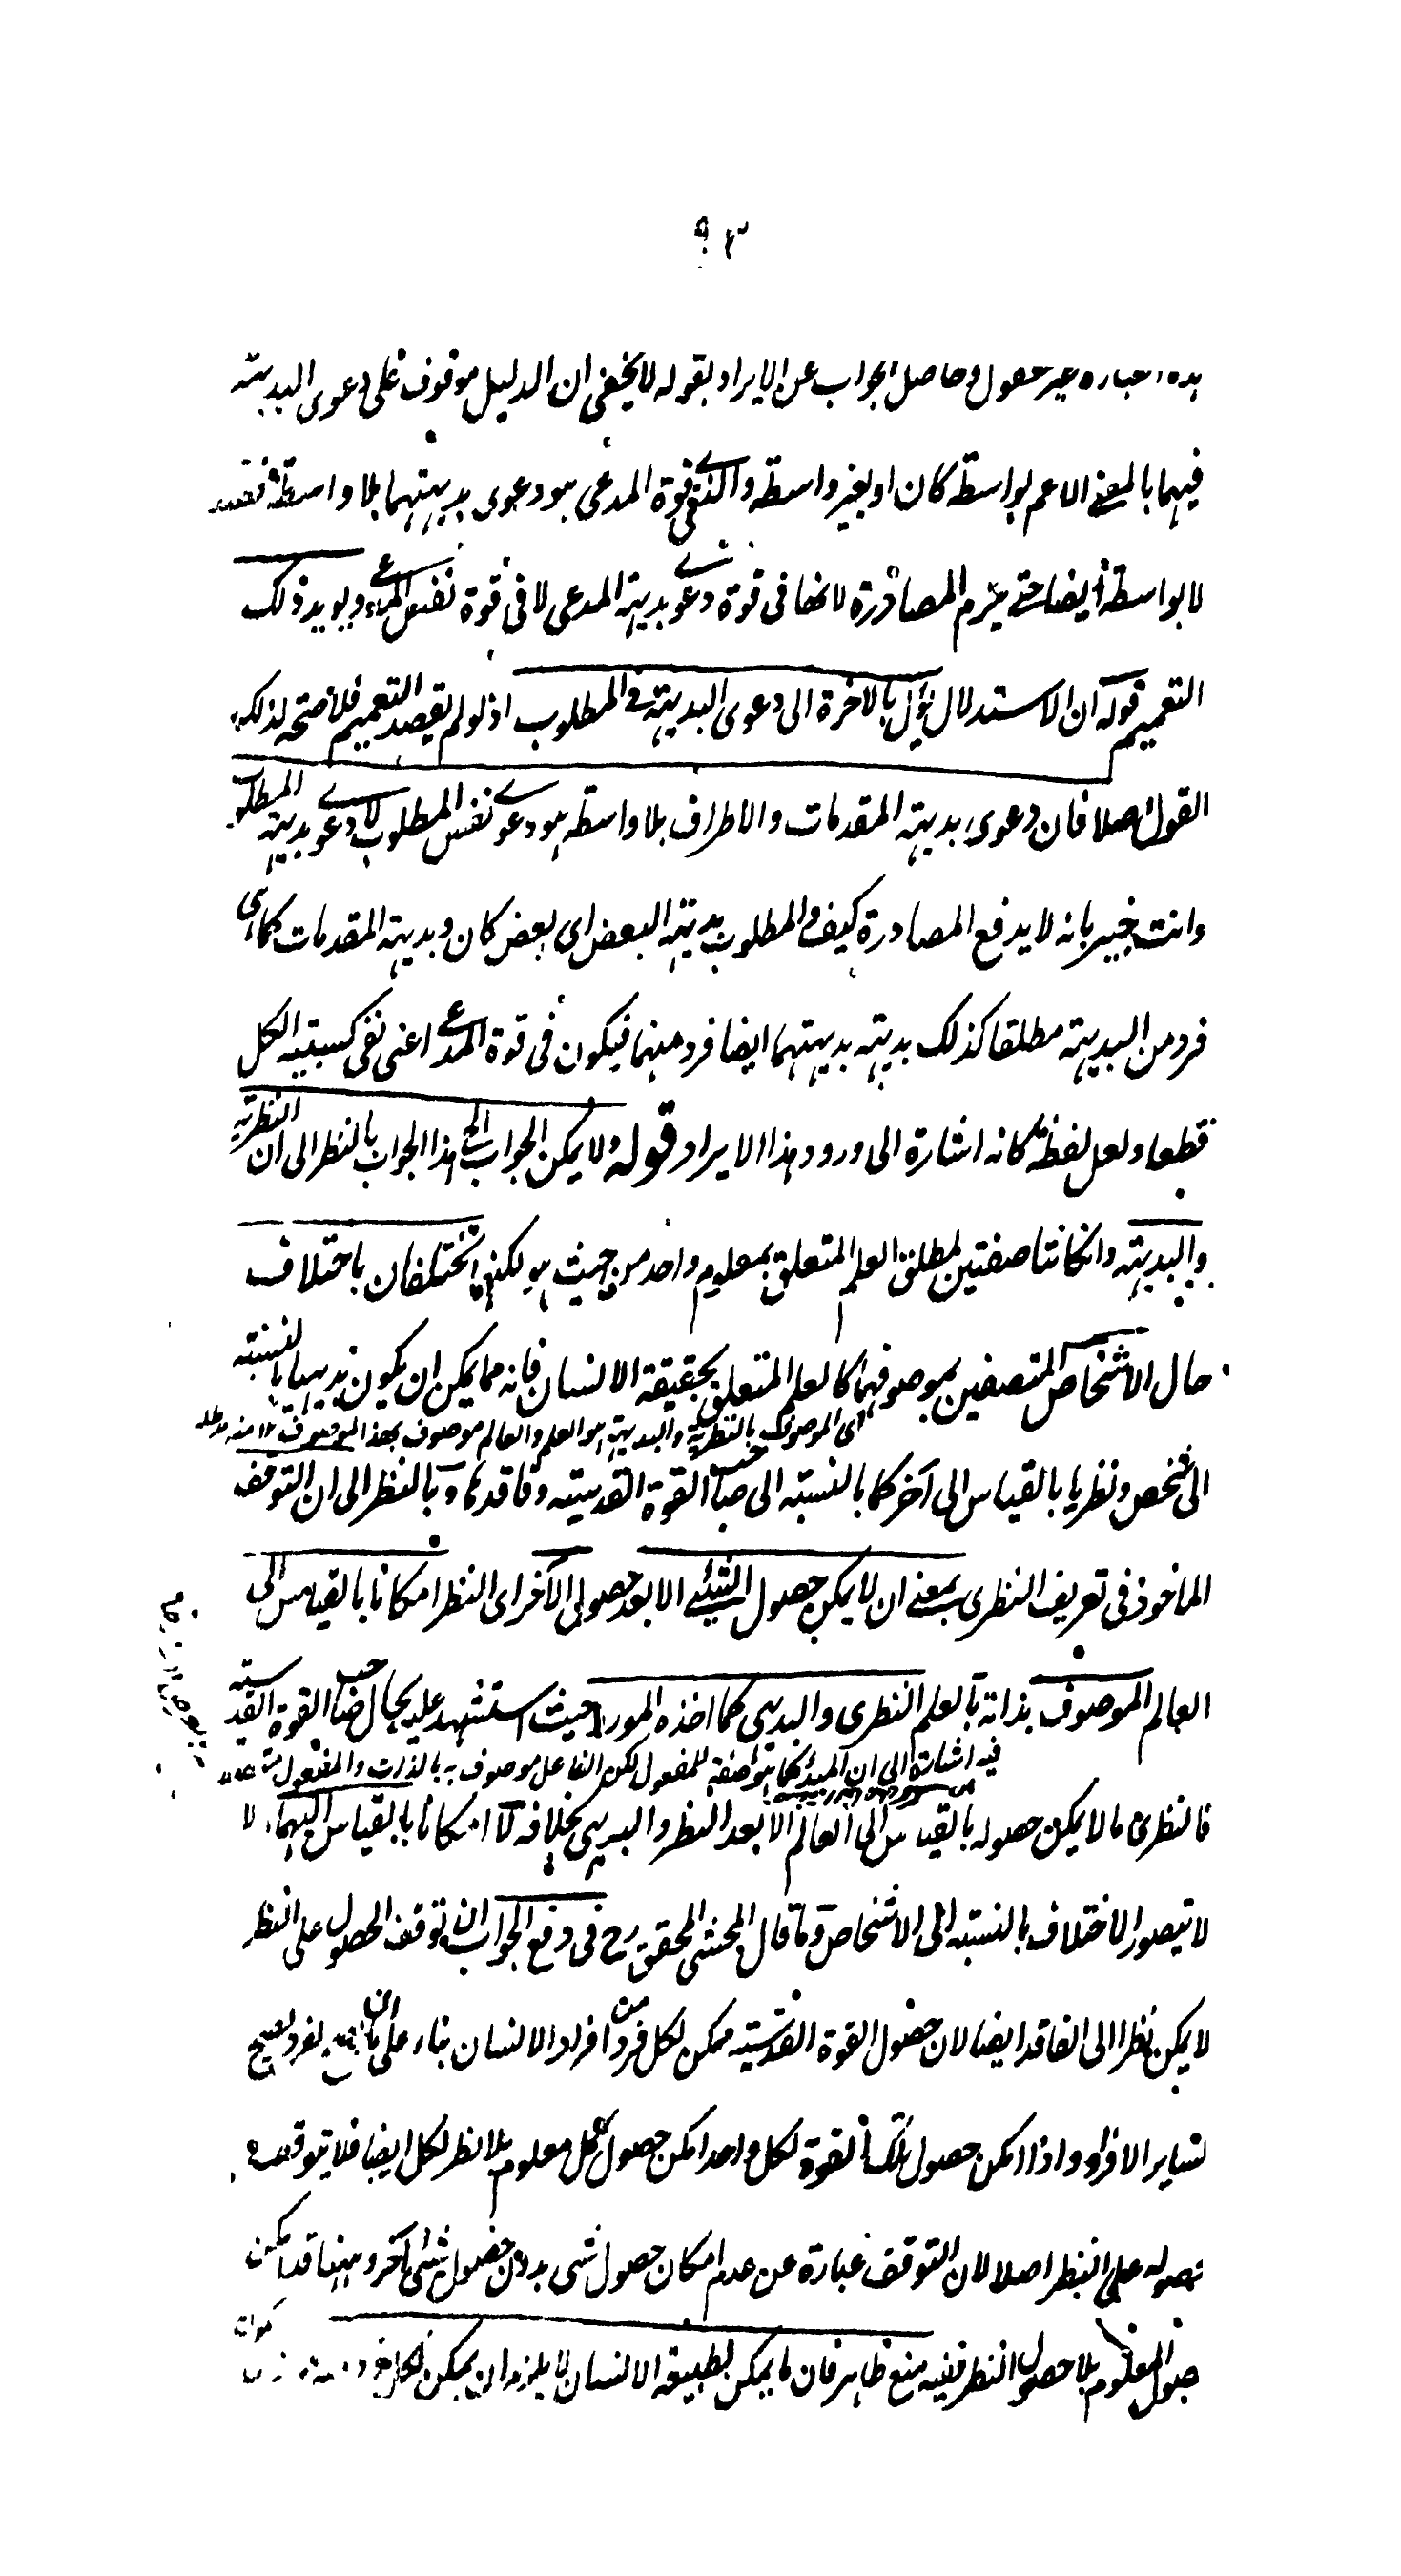 ٩٣
غير معقول وحاصل الجواب عن الايراد بقوله لا يخفى ان الدليل موقوف على دعوى البديهة
فيهما بالمعنى الاعم بواسطة كان او بغير واسطة والتى فى قوة المدعى هو دعوى بديهتهما بلا واسطة فقط
لا بواسطة ايضا حتى يلزم المصادرة لانها فى قوة دعوى بديهة المدعى لا فى قوة نفس المدعى ويويد ذلك
التعميم قوله ان الاستدلال يؤل بالاخرة الى دعوى البديهة فى المطلوب اذ لو لم يقصد التعميم فلا صحة لذلك
القول اصلا فان دعوى بديهة المقدمات والاطراف بلا واسطة هو دعوى نفس المطلوب لا دعوى بديهة المطلوب
وانت خبير بانه لا يدفع المصادرة كيف والمطلوب بديهة البعض اى بعض كان وبديهة المقدمات كما هى
فرد من البديهة مطلقا كذلك بديهة بديهتهما ايضا فرد منهما فيكون فى قوة المدعى اعنى نفى كسبية الكل
قطعا ولعل لفظة كانه اشارة الى ورود هذا الايراد قوله ولا يمكن الجواب الخ هذا الجواب بالنظر الى ان النظرية
والبديهة وانكانتا صفتين لمطلق العلم المتعلق بمعلوم واحد من حيث هو لكنهما تختلفان باختلاف
حال الاشخاص المتصفين بموصوفهما كالعلم المتعلق بحقيقة الانسان فانه مما يمكن ان يكون بديهيا بالنسبة
اى الموصوف بالنظرية والبديهة هو العلم والعالم موصوف بهذا الموصوف ١٢ منه مد ظله
الى شخص ونظريا بالقياس الى آخر كما بالنسبة الى صاحب القوة القدسية وفاقدها وبالنظر الى ان التوقف
الماخوذ فى تعريف النظرى بمعنى ان لا يمكن حصول الشيئ الا بعد حصول الآخر اى النظر امكانا بالقياس الى
العالم الموصوف بذاته بالعلم النظرى والبديهى كما اخذه المورد حيث استشهد عليه بحال صاحب القوة القدسية
فيه اشارة الى ان المبدء كما هو صفة للمفعول لكن الفاعل موصوف به بالذات والمفعول
فالنظرى ما لا يمكن حصوله بالقياس الى العالم الا بعد النظر والبديهى بخلافه لا امكانا بالقياس اليهما، لا
لا يتصور الاختلاف بالنسبة الى الاشخاص وما قال المحشى المحقق رح فى دفع الجواب ان توقف الحصول على النظر
لا يمكن نظرا الى الفاقد ايضا لان حصول القوة القدسية ممكن لكل فرد من افراد الانسان بناء على ان لفرد يصح
لساير الافراد واذا امكن حصول تلك القوة لكل واحد امكن حصول كل معلوم بلا نظر لكل ايضا فلا يتوقف
حصوله على النظر اصلا لان التوقف عبارة عن عدم امكان حصول شى بدون حصول شئ آخر وههنا قد امكن
حصول المعلوم بلا حصول النظر ففيه منع ظاهر فان ما يمكن لطبيعة الانسان لا يلزم ان يمكن لكل